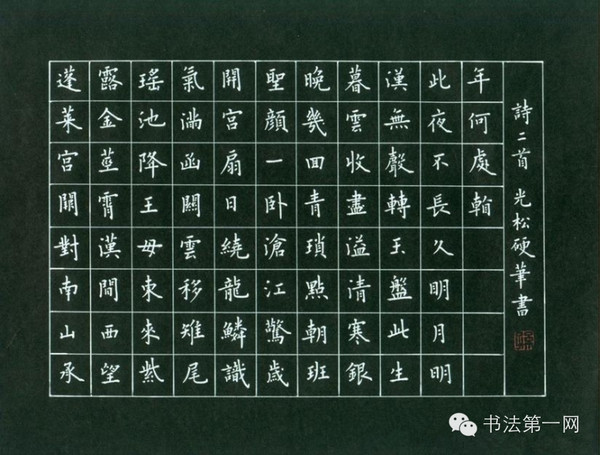 蓬萊宮闕對南山承
露金莖霄漢間西望
瑤池降王母東來紫
氣滿函關雲移雉尾
開宮扇日繞龍鱗識
聖顏一卧滄江驚歲
晚幾回青瑣點朝班
暮雲收盡溢清寒銀
漢無聲轉玉盤此生
此夜不長久明月明
年何處看
詩二首 光松硬筆書
书法第一网